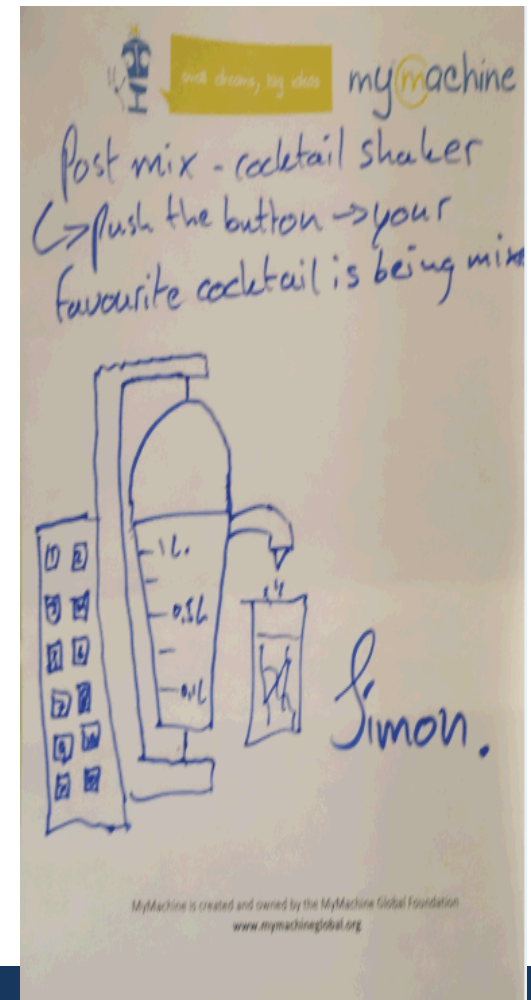 dreams, big ideas
mymachine
Post mix - cocktail shaker
↳ push the button → your
favourite cocktail is being mixe
1 2
3 4
5 6
7 8
9 10
11 12
1L.
0,5L
0,1L
Simon.
MyMachine is created and owned by the MyMachine Global Foundation
www.mymachineglobal.org